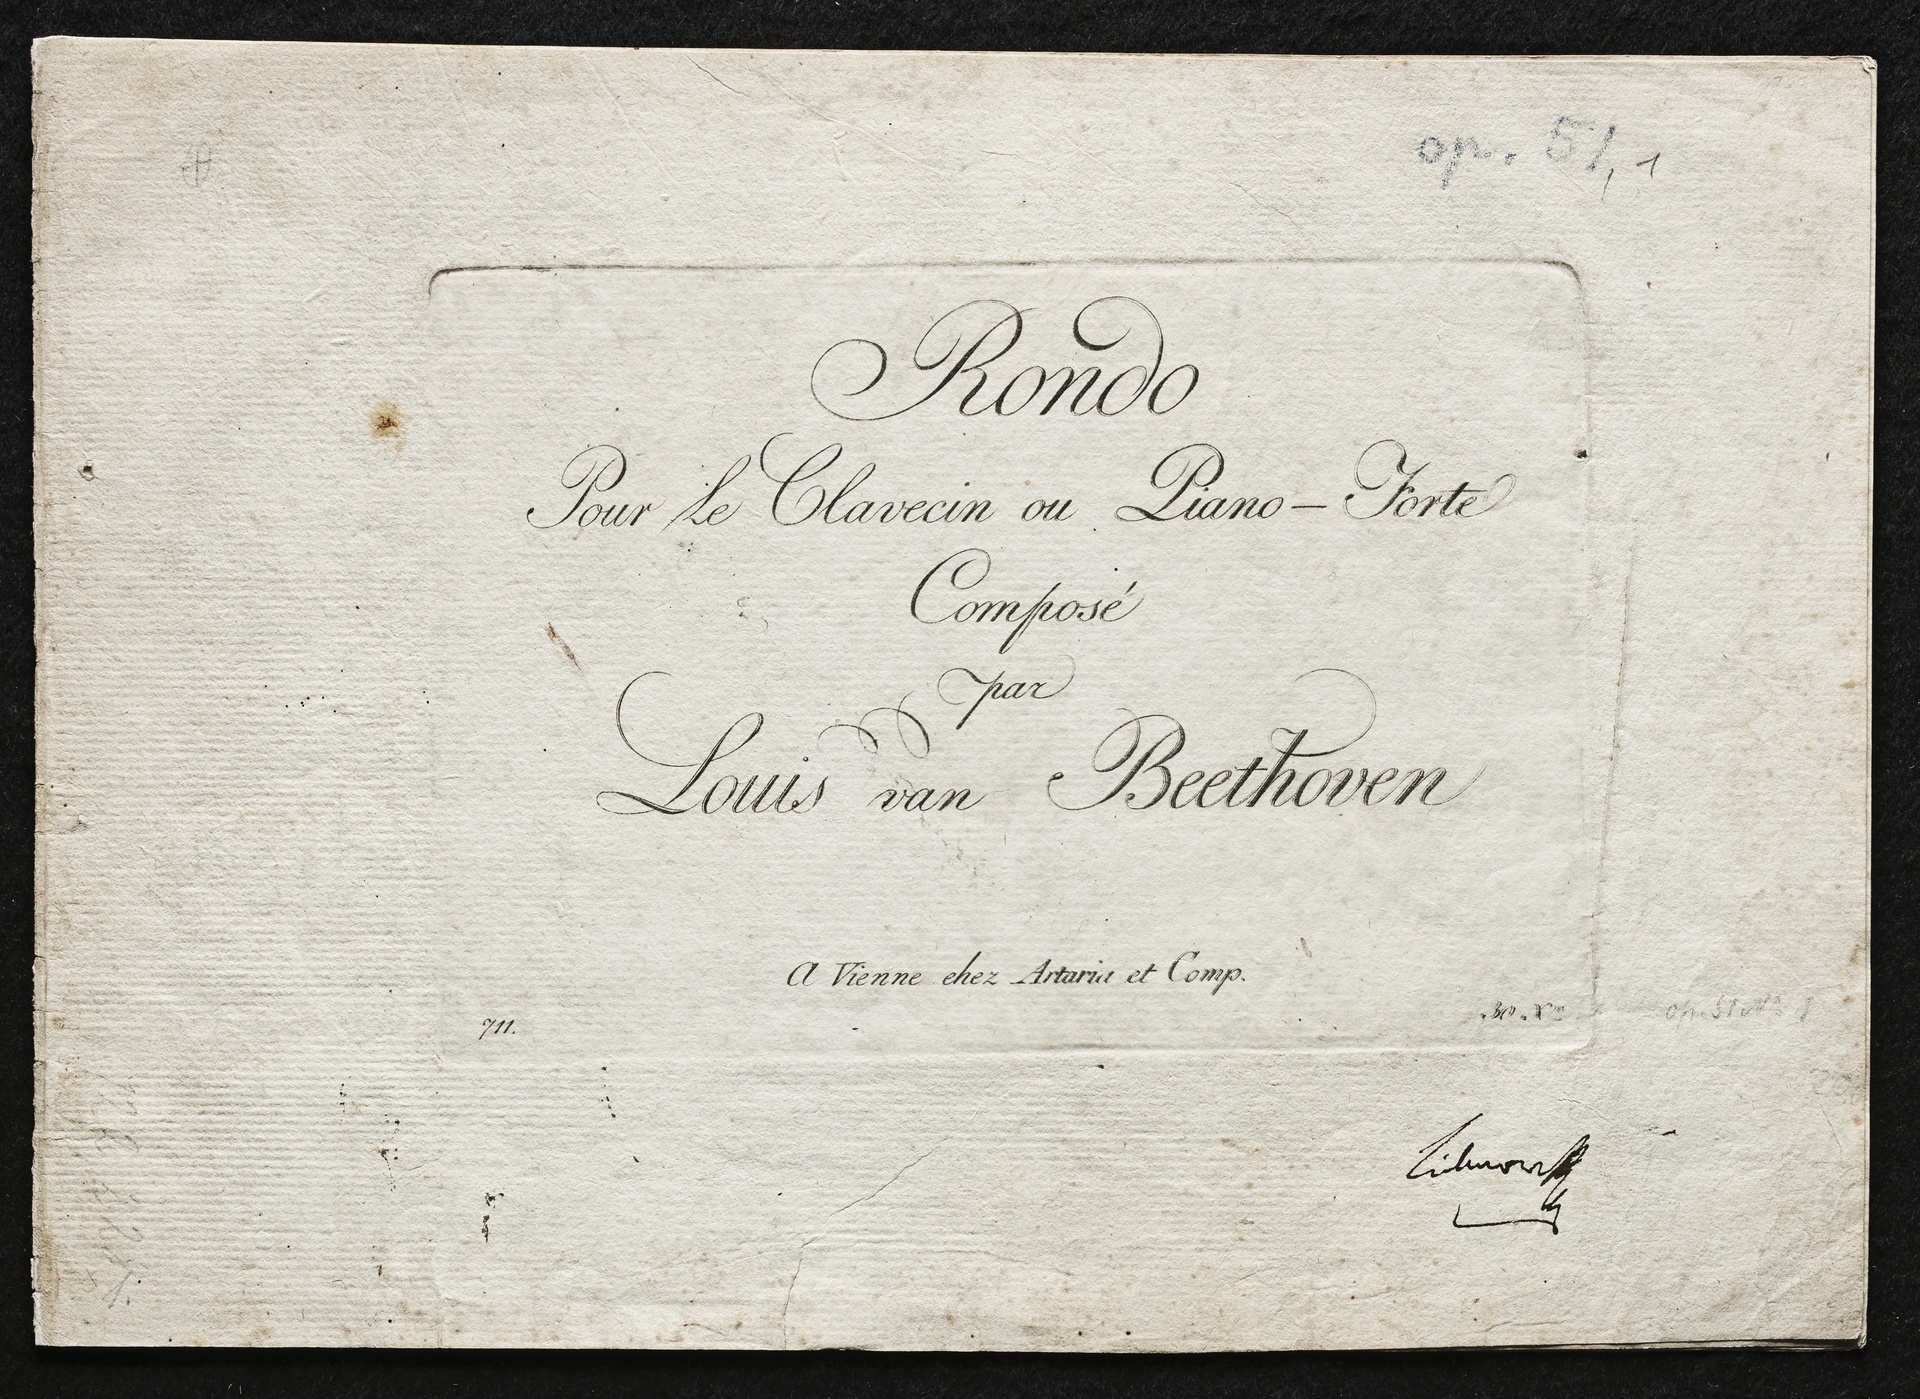 op. 51, 1
Rondo
Pour Le Clavecin ou Piano-Forte
Composé
par
Louis van Beethoven
A Vienne chez Artaria et Comp.
711.